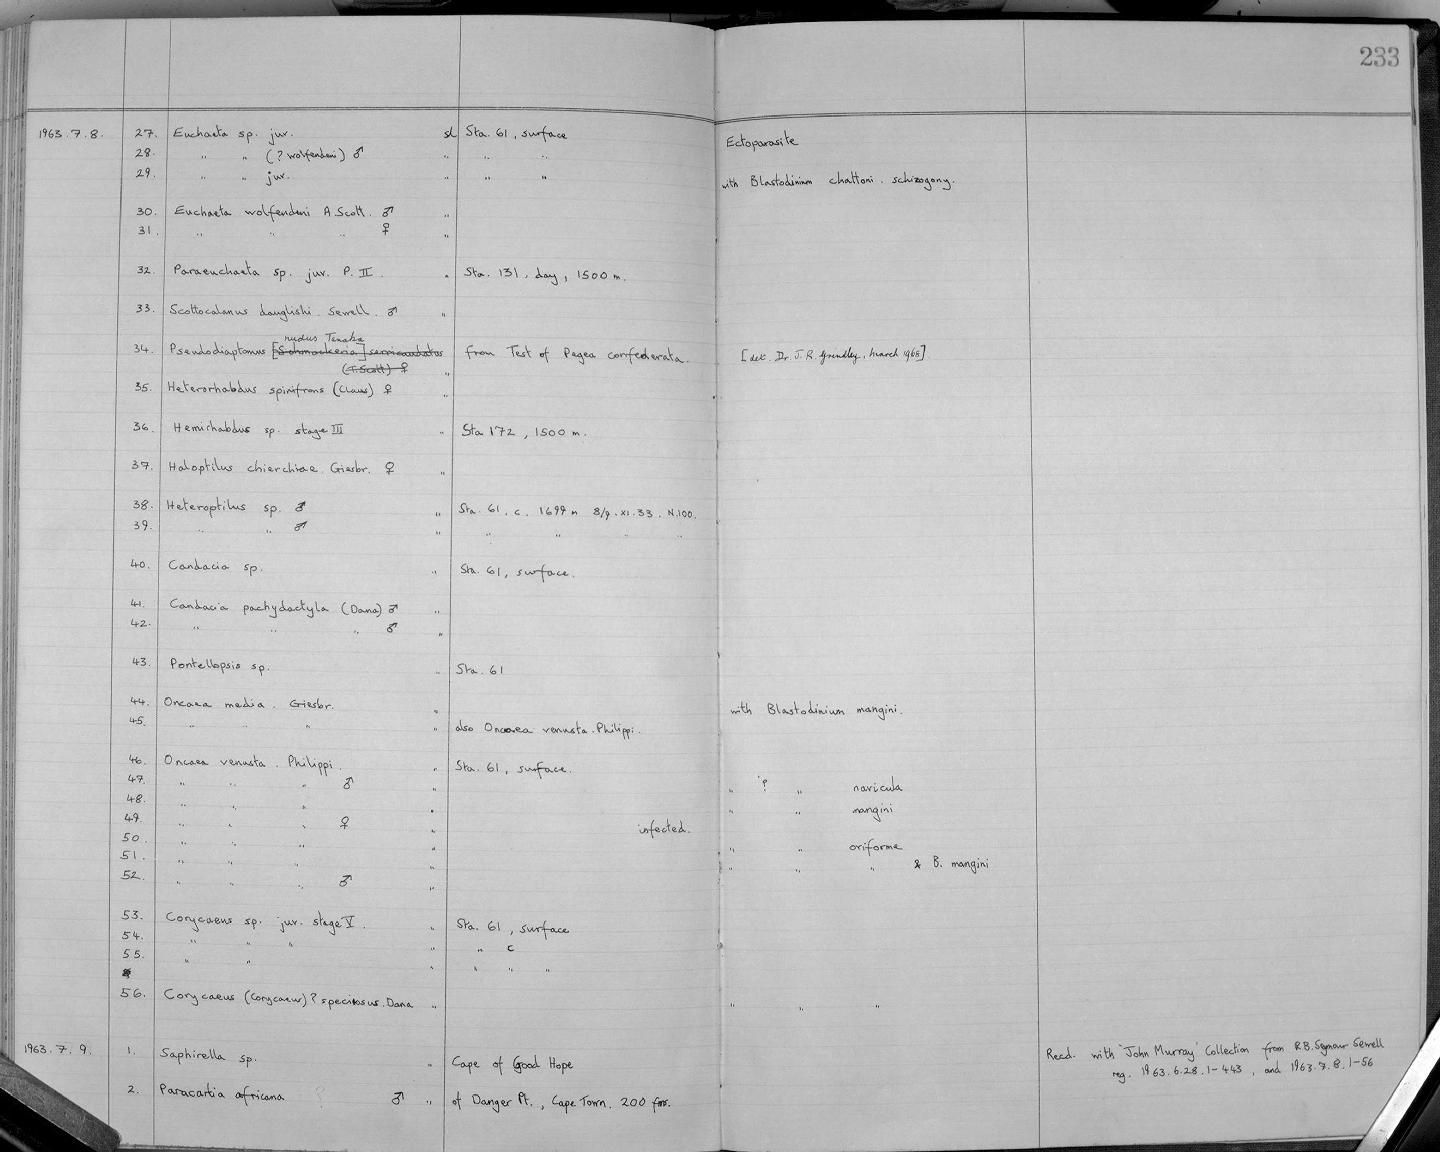 233
1963.7.8. 27. Euchaeta sp. jur. sl Sta. 61, surface Ectoparasite
28. " " (? wolfendeni) ♂ " " "
29. " " jur. " " " with Blastodinium chattoni. schizogony.
30. Euchaeta wolfendeni A. Scott. ♂ "
31. " " " ♀ "
32. Paraeuchaeta sp. jur. P. II. " Sta. 131, day, 1500 m.
33. Scottocalanus dauglishi. Sewell. ♂ "
nudus Tanaka
34. Pseudodiaptomus [Schmackeria] serricaudatus from Test of Pegea confederata. [det. Dr. J. R. Grindley, March 1965]
(T. Scott) ♀ "
35. Heterorhabdus spinifrons (Claus) ♀ "
36. Hemirhabdus sp. stage III " Sta 172, 1500 m.
37. Haloptilus chierchiae. Giesbr. ♀ "
38. Heteroptilus sp. ♂ " Sta. 61. c. 1699 m 8/9. XI. 33. N.100.
39. " " ♂ " " " " "
40. Candacia sp. " Sta. 61, surface.
41. Candacia pachydactyla (Dana) ♂ "
42. " " " ♂ "
43. Pontellopsis sp. " Sta. 61
44. Oncaea media. Giesbr. " with Blastodinium mangini.
45. " " " " also Oncaea venusta. Philippi.
46. Oncaea venusta. Philippi. " Sta. 61, surface.
47. " " " ♂ " " ? " navicula
48. " " " " " " mangini
49. " " " ♀ " infected.
50. " " " " " " oviforme
51. " " " " " " " & B. mangini
52. " " " ♂ "
53. Corycaeus sp. jur. stage V. " Sta. 61, surface
54. " " " " " c
55. " " " " " "
56. Corycaeus (Corycaeus) ? speciosus. Dana " " " "
1963.7.9. 1. Saphirella sp. " Cape of Good Hope Recd. with 'John Murray' Collection from R.B. Seymour Sewell
reg. 1963.6.28.1-443, and 1963.7.8.1-56
2. Paracartia africana ♂ " of Danger Pt., Cape Town. 200 fms.